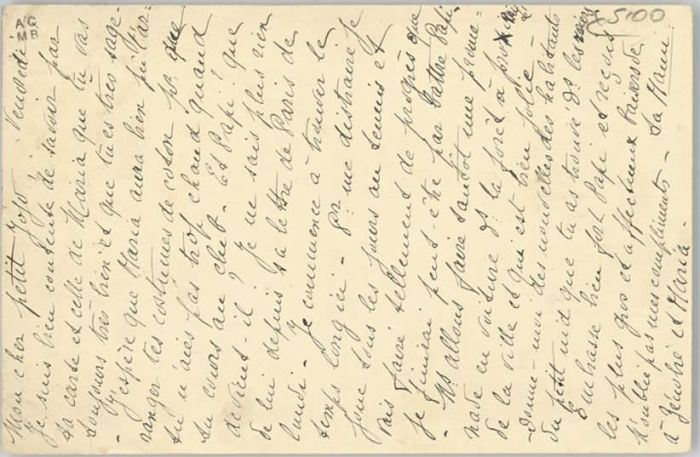 AC
MB
£5.00
Mon cher petit Jojo - Vendredi
Je suis bien contente de savoir par
ta carte et celle de Maria que tu vas
toujours très bien et que tu es très sage -
- J'espère que Maria aura bien fait ar-
ranger tes costumes de coton pr. que
tu n'aies pas trop chaud quand
tu cours au chet - Et Papi! que
devient-il? Je ne sais plus rien
de lui depuis sa lettre de Paris de
lundi - Je commence à trouver le
temps long ici - Pr. me distraire je
joue tous les jours au tennis et
vais faire tellement de progrès que
je finirai peut-être par battre Papi
- Ns. allons faire tantôt une prome-
nade en voiture ds. la forêt à
de la ville et qui est bien jolie -
Donne-moi des nouvelles des habitants
du petit nid que tu as trouvé ds. les
Embrasse bien fort Papi et reçois
les plus gros et affectueux baisers de
N'oublie pas mes compliments - ta Mami
à et Maria.